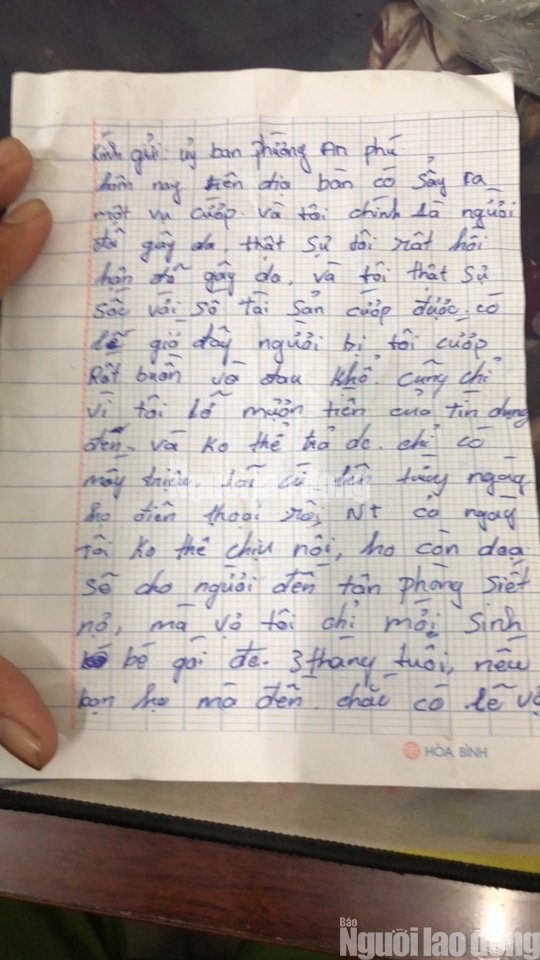 Kính gửi: uỷ ban phường An phú
hôm nay trên địa bàn có sảy ra
một vụ cướp. và tôi chính là người
đã gây da. thật sự tôi rất hối
hận đã gây da, và tôi thật sự
sốc với số tài sản cướp được. có
lẽ giờ đây người bị tôi cướp
Rất buồn và đau khổ. cũng chỉ
vì tôi lỡ mượn tiền của tín dụng
đen. và ko thể trả dc. chỉ có
mấy triệu lãi cứ lên từng ngày
họ điện thoại rồi, NT cả ngày
Tôi ko thể chịu nổi, họ còn doạ
sẽ cho người đến tận phòng siết
nợ, mà vợ tôi chỉ mới sinh
bé gái đc. 3 tháng tuổi, nếu
bọn họ mà đến. chắc có lẽ vợ
HÒA BÌNH
Báo
Người lao động